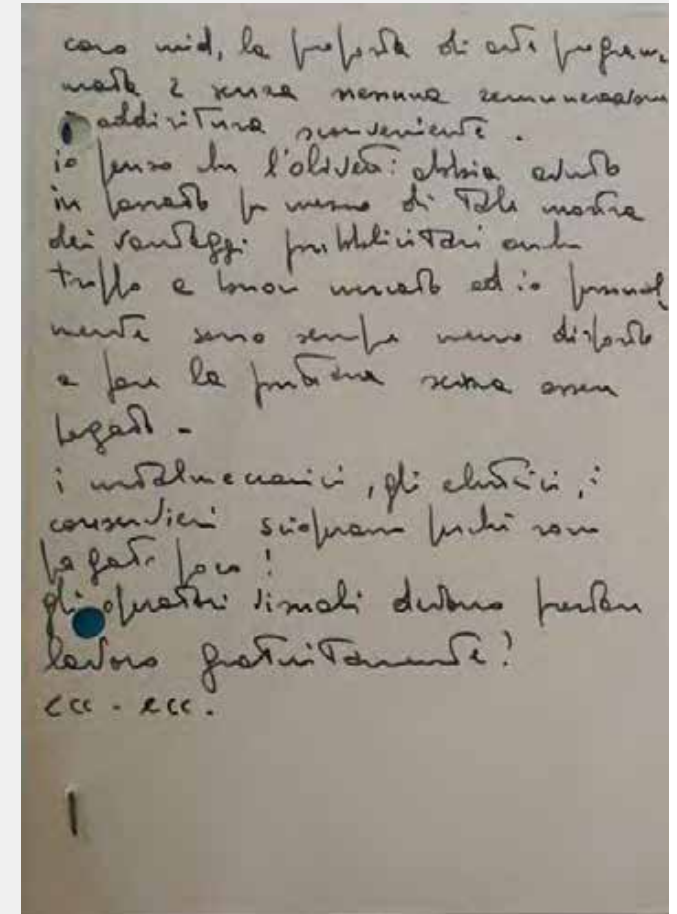 caro mid, la proposta di arte program
mata è senza nessuna remunerazione
è addiritura sconveniente.
io penso che l'olivetti abbia avuto
in passato per mezzo di tale mostra
dei vantaggi pubblicitari anche
troppo a buon mercato ed io personal
mente sono sempre meno disposto
a fare la puttana senza essere
pagato -
i metalmeccanici, gli elettrici, i
conservieri scioperano perché sono
pagati poco!
gli operatori visuali devono prestare
lavoro gratuitamente?
ecc - ecc.